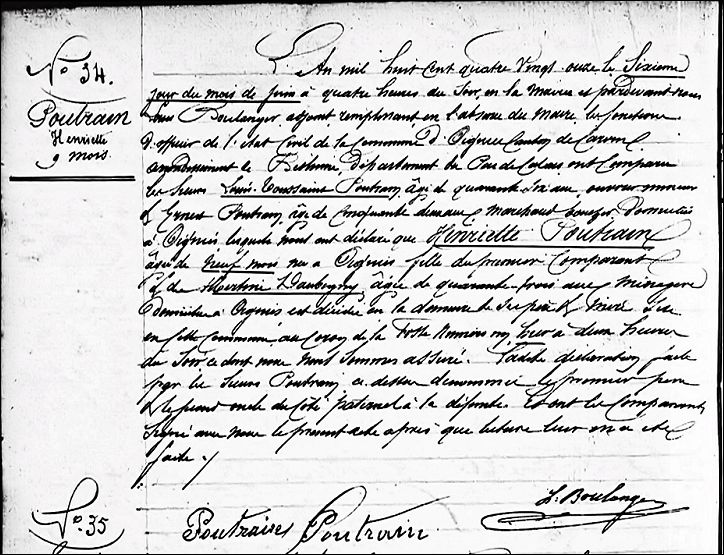 N° 34.
Poutrain
Henriette
9 mois.
L'An mil huit cent quatre vingt onze le Sixième
jour du mois de Juin à quatre heures du Soir en la Mairie et pardevant nous
Boulanger, adjoint remplissant en l'absence du Maire, les fonctions
d'officier de l'état Civil de la Commune d'Oignies Canton de Carvin
arrondissement de Béthune, département du Pas de Calais, ont Comparu
les Sieurs Louis Toussaint Poutrain, âgé de quarante six ans, ouvrier mineur
et Ernest Poutrain, âgé de Cinquante deux ans Marchand domiciliés
à Oignies, lesquels nous ont déclaré que Henriette Poutrain
âgée de Neuf mois née à Oignies fille du premier Comparant
et de Martine Daubigny, âgée de quarante-trois ans Ménagère
domiciliée à Oignies est décédée en la demeure de ses père et Mère Sise
en Cette Commune au Coron de la Fosse hier à deux heures
du Soir ce dont nous nous Sommes assuré. La dite déclaration faite
par les Sieurs Poutrain, ci-dessus dénommés le premier père
et le second oncle du Côté paternel à la défunte. Et ont les Comparants
Signé avec nous le présent acte après que lecture leur en a été
faite ./
L. Boulanger
N° 35
Poutrain Poutrain